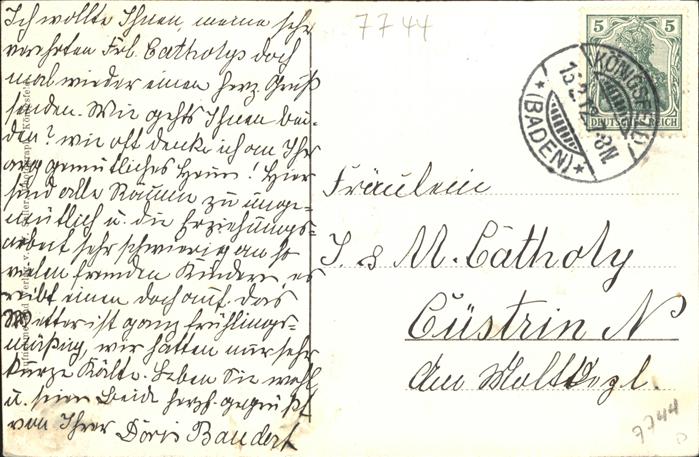 Ich wollte Ihnen, meine sehr
verehrten Frl. Catholys doch
mal wieder einen herz. Gruß
senden. Wie gehts Ihnen bei-
den? wie oft denke ich an Ihr
arg gemütliches Heim! Hier
sind alle Räume zu unge-
mütlich u. die Erziehungs-
arbeit sehr schwierig an so
vielen fremden Kindern, es
reibt einen doch auf. das
Wetter ist ganz frühlings-
mäßig, wir hatten nur sehr
kurze Kälte. Leben Sie wohl
u. seien beide herzl. gegrüßt
von Ihrer Doris Baudert
7744
5 5
DEUTSCHES REICH
KÖNIGSFELD
15.2.12. 7-8N
* (BADEN) *
Fräulein
J. & M. Catholy
Cüstrin N
Am
7744